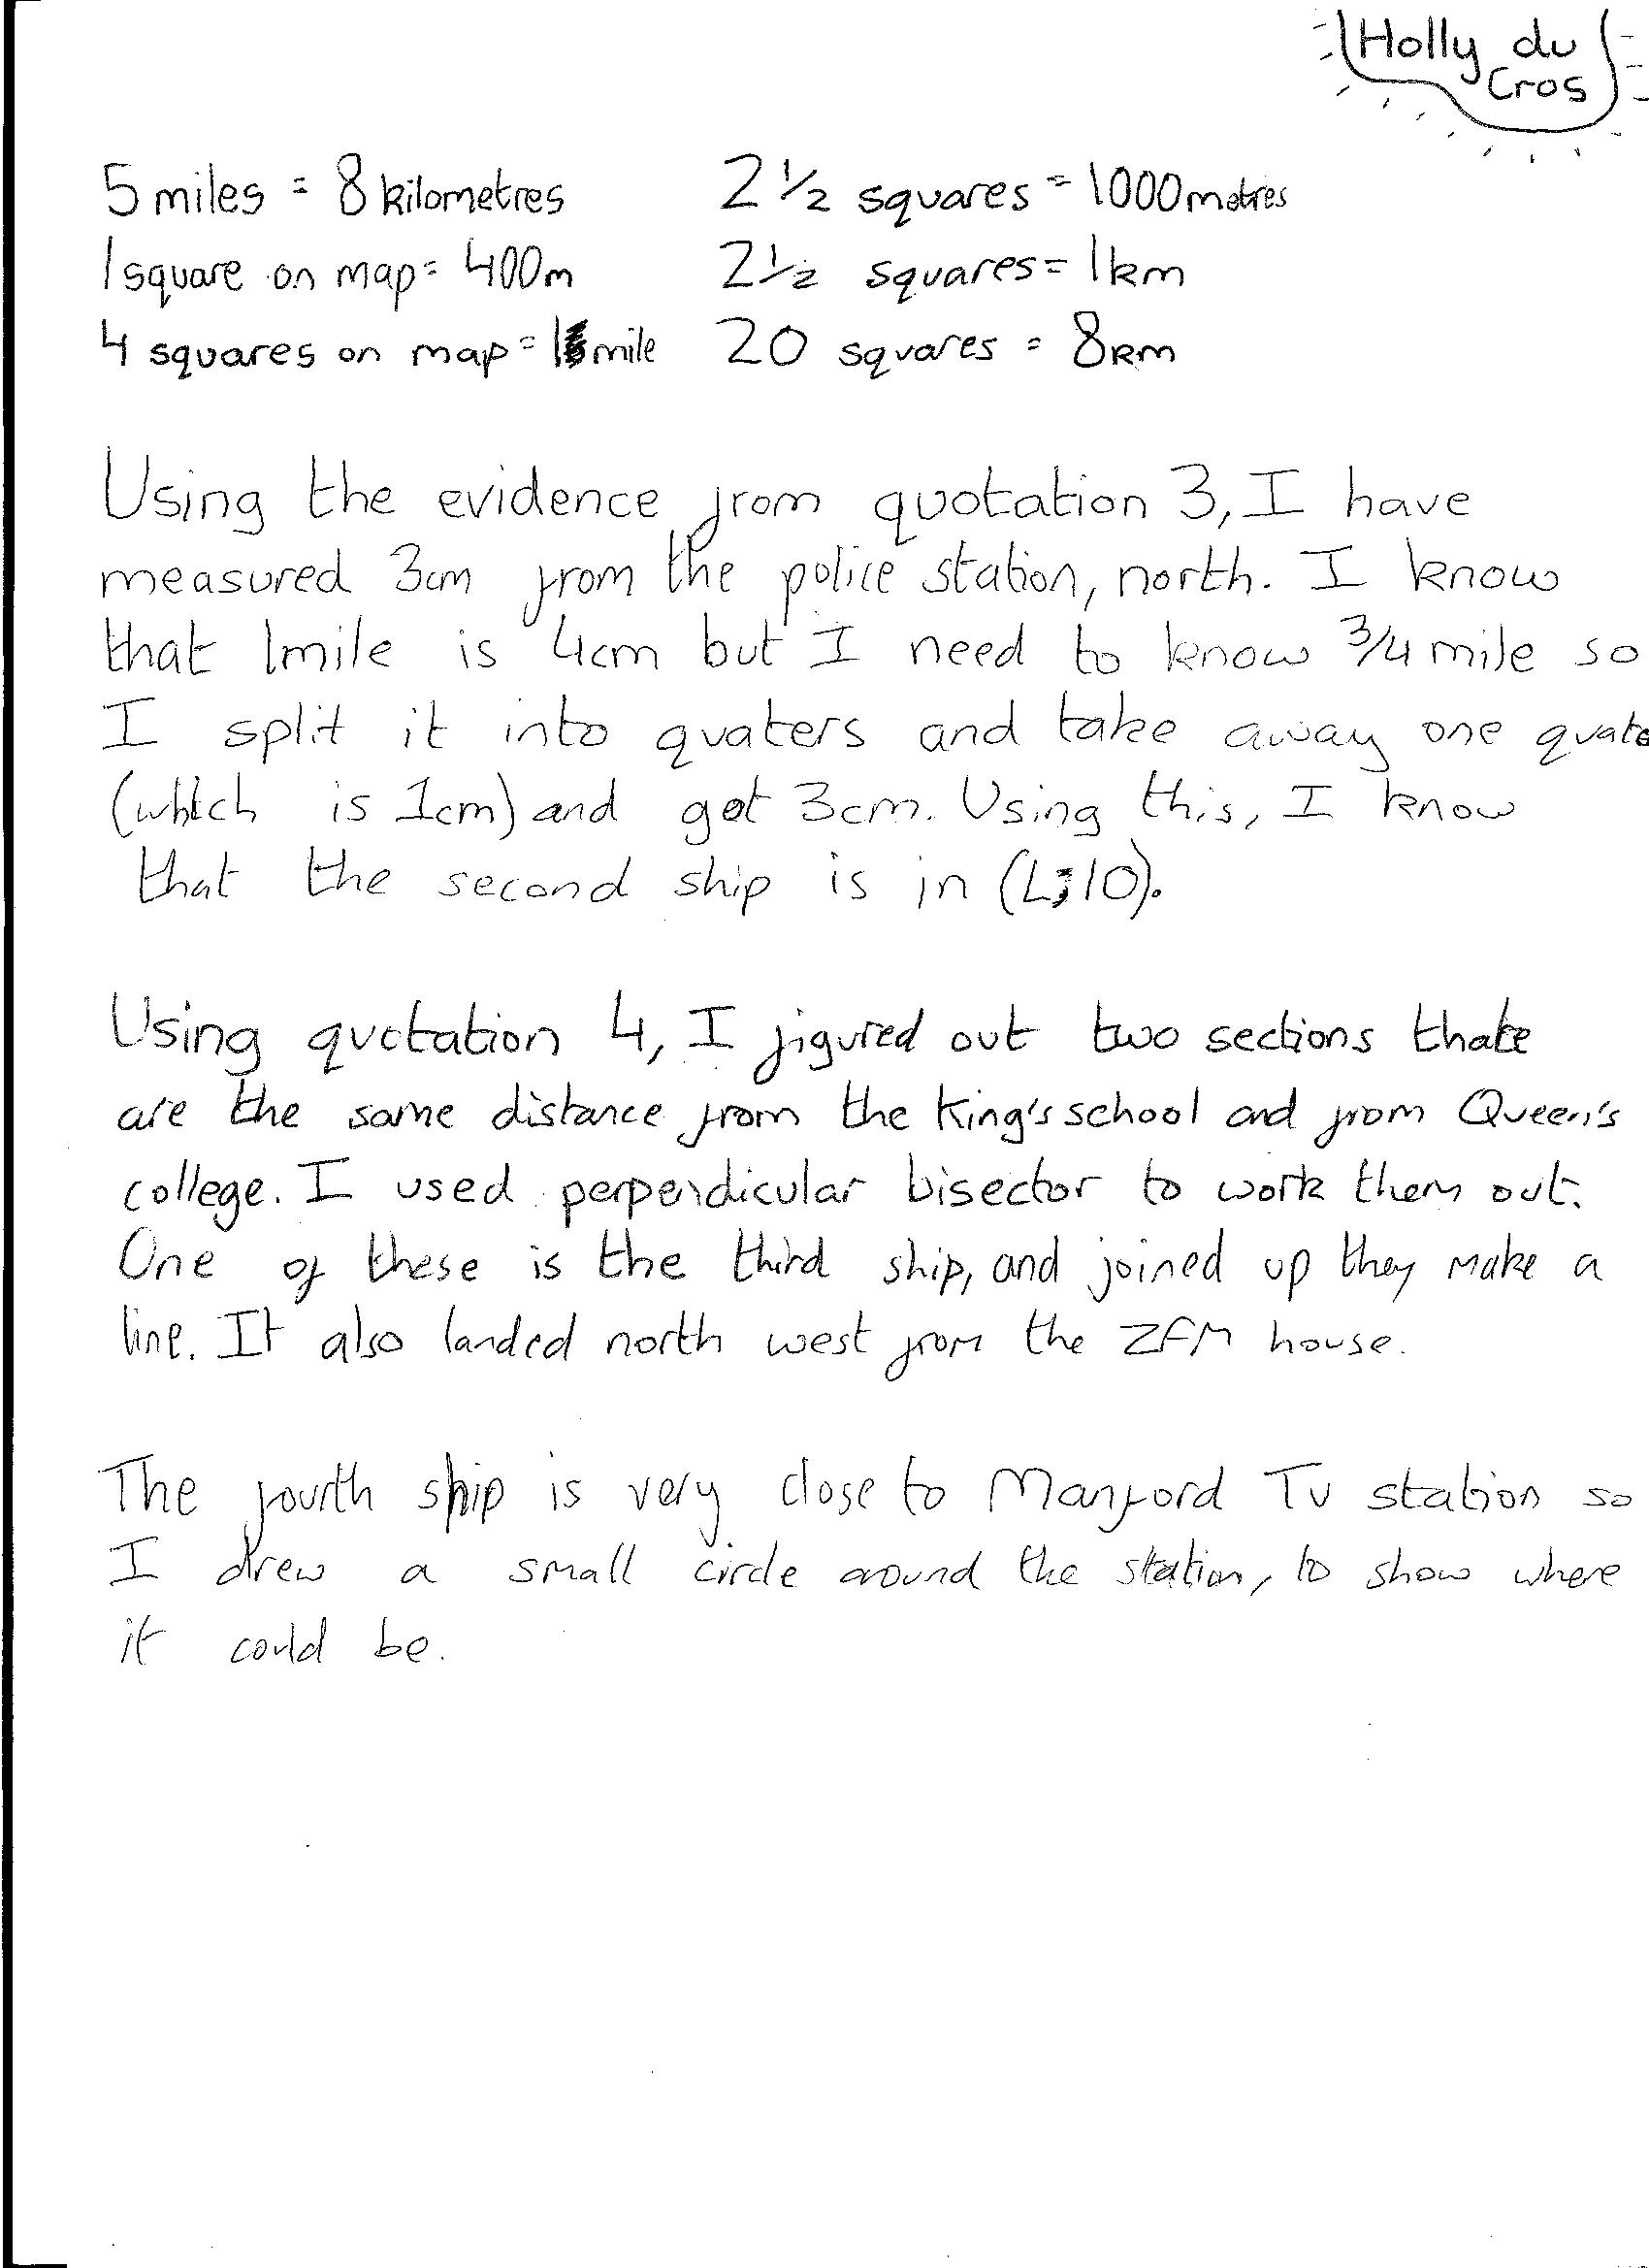 Holly du
Cros
5 miles = 8 kilometres
1 square on map = 400m
4 squares on map = 1 mile
2 1/2 squares = 1000 metres
2 1/2 squares = 1km
20 squares = 8km
Using the evidence from quotation 3, I have
measured 3cm from the police station, north. I know
that 1mile is 4cm but I need to know 3/4 mile so
I split it into quaters and take away one quate
(which is 1cm) and get 3cm. Using this, I know
that the second ship is in (L;10).
Using quotation 4, I figured out two sections that
are the same distance from the King's school and from Queen's
college. I used perpendicular bisector to work them out.
One of these is the third ship, and joined up they make a
line. It also landed north west from the ZFM house.
The fourth ship is very close to Manford TV station so
I drew a small circle around the station, to show where
it could be.